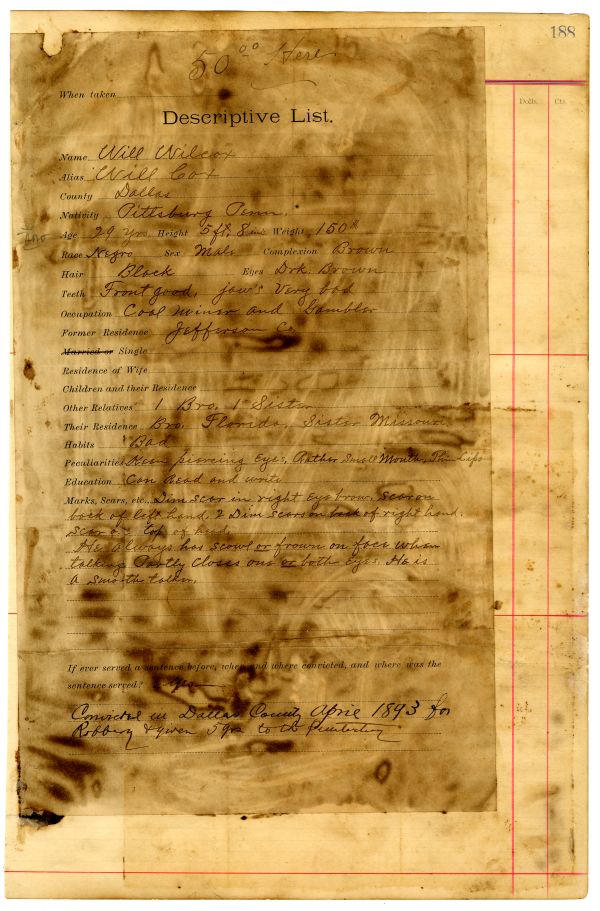 188
50.00 Here
Dolls. Cts.
When taken
Descriptive List.
Name Will Wilcox
Alias Will Cox
County Dallas
Nativity Pittsburg Penn.
Age 29 Yrs Height 5 ft. 8 in Weight 150 lb
Race Negro Sex Male Complexion Brown
Hair Black Eyes Drk. Brown
Teeth Front good, jaw's Very bad
Occupation Coal miner and Gambler
Former Residence Jefferson Co
Married or Single
Residence of Wife
Children and their Residence
Other Relatives 1 Bro, 1 Sister
Their Residence Bro. Florida, Sister Missouri
Habits Bad
Peculiarities Keen piercing Eyes, Rather Small Mouth, Thin Lips
Education Can Read and write
Marks, Scars, etc., Dim scar in right Eye brow, scar on
back of left hand. 2 Dim scars on back of right hand.
Scar on top of head.
He Always has scowl or frown on face when
talking Partly Closes one or both Eyes. He is
a smooth talker.
If ever served a sentence before, when and where convicted, and where was the
sentence served? Yes
Convicted in Dallas County April 1893 for
Robbery & given 5 yrs to the